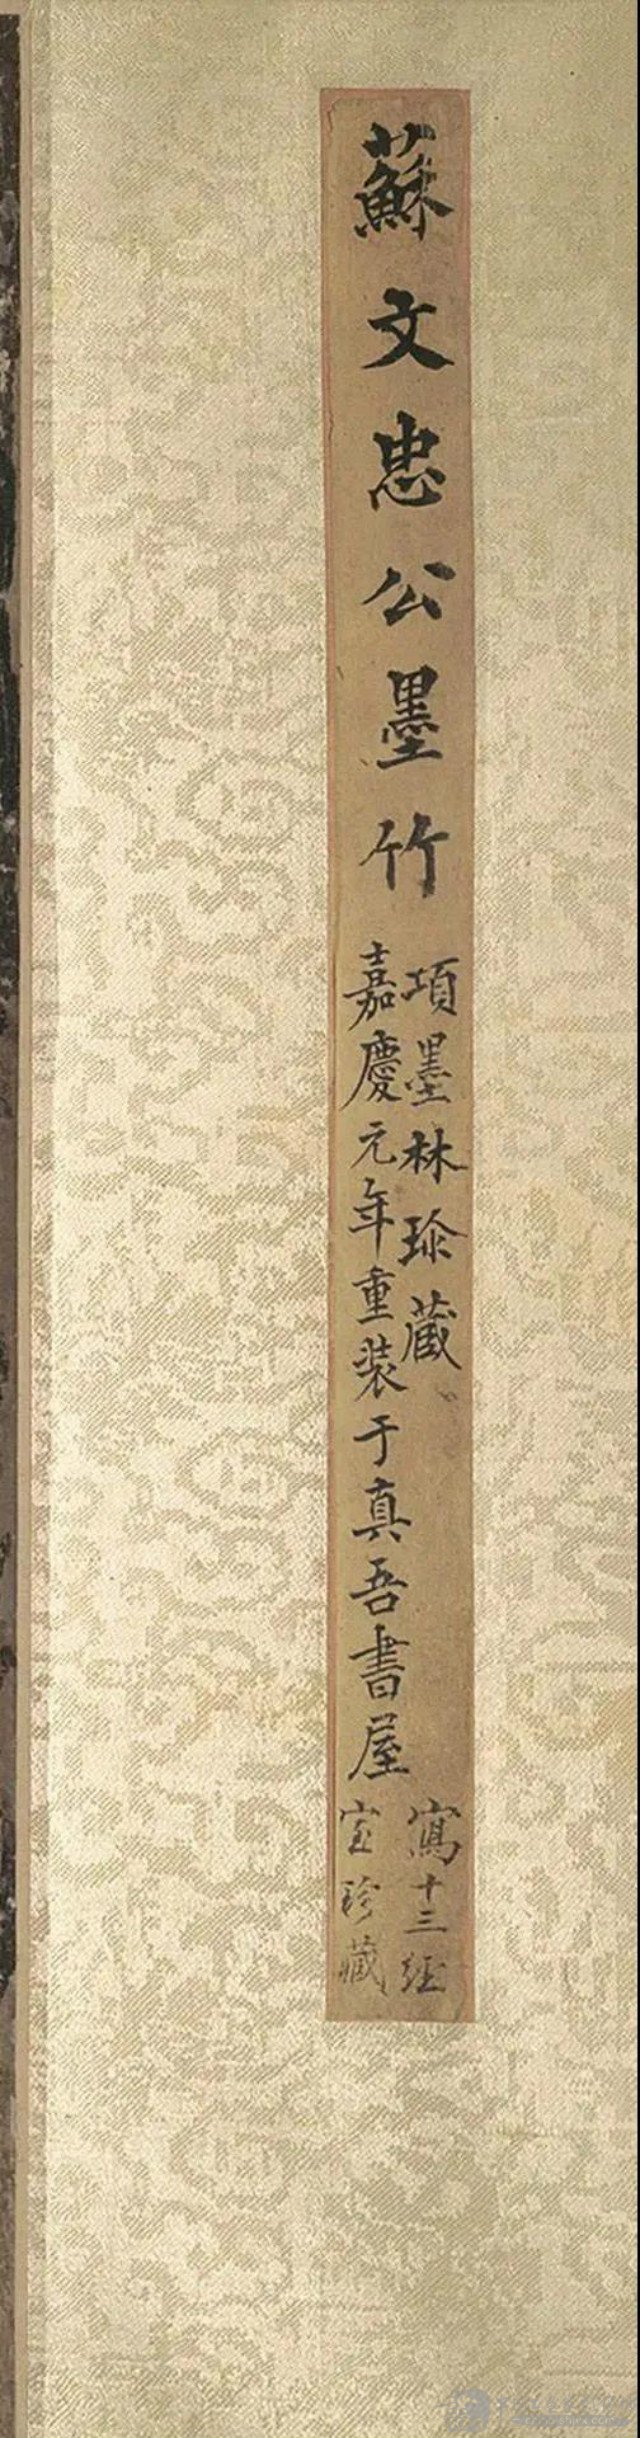 蘇文忠公墨竹
項墨林珎藏
嘉慶元年重装于真吾書屋
寫十三経
室珍藏